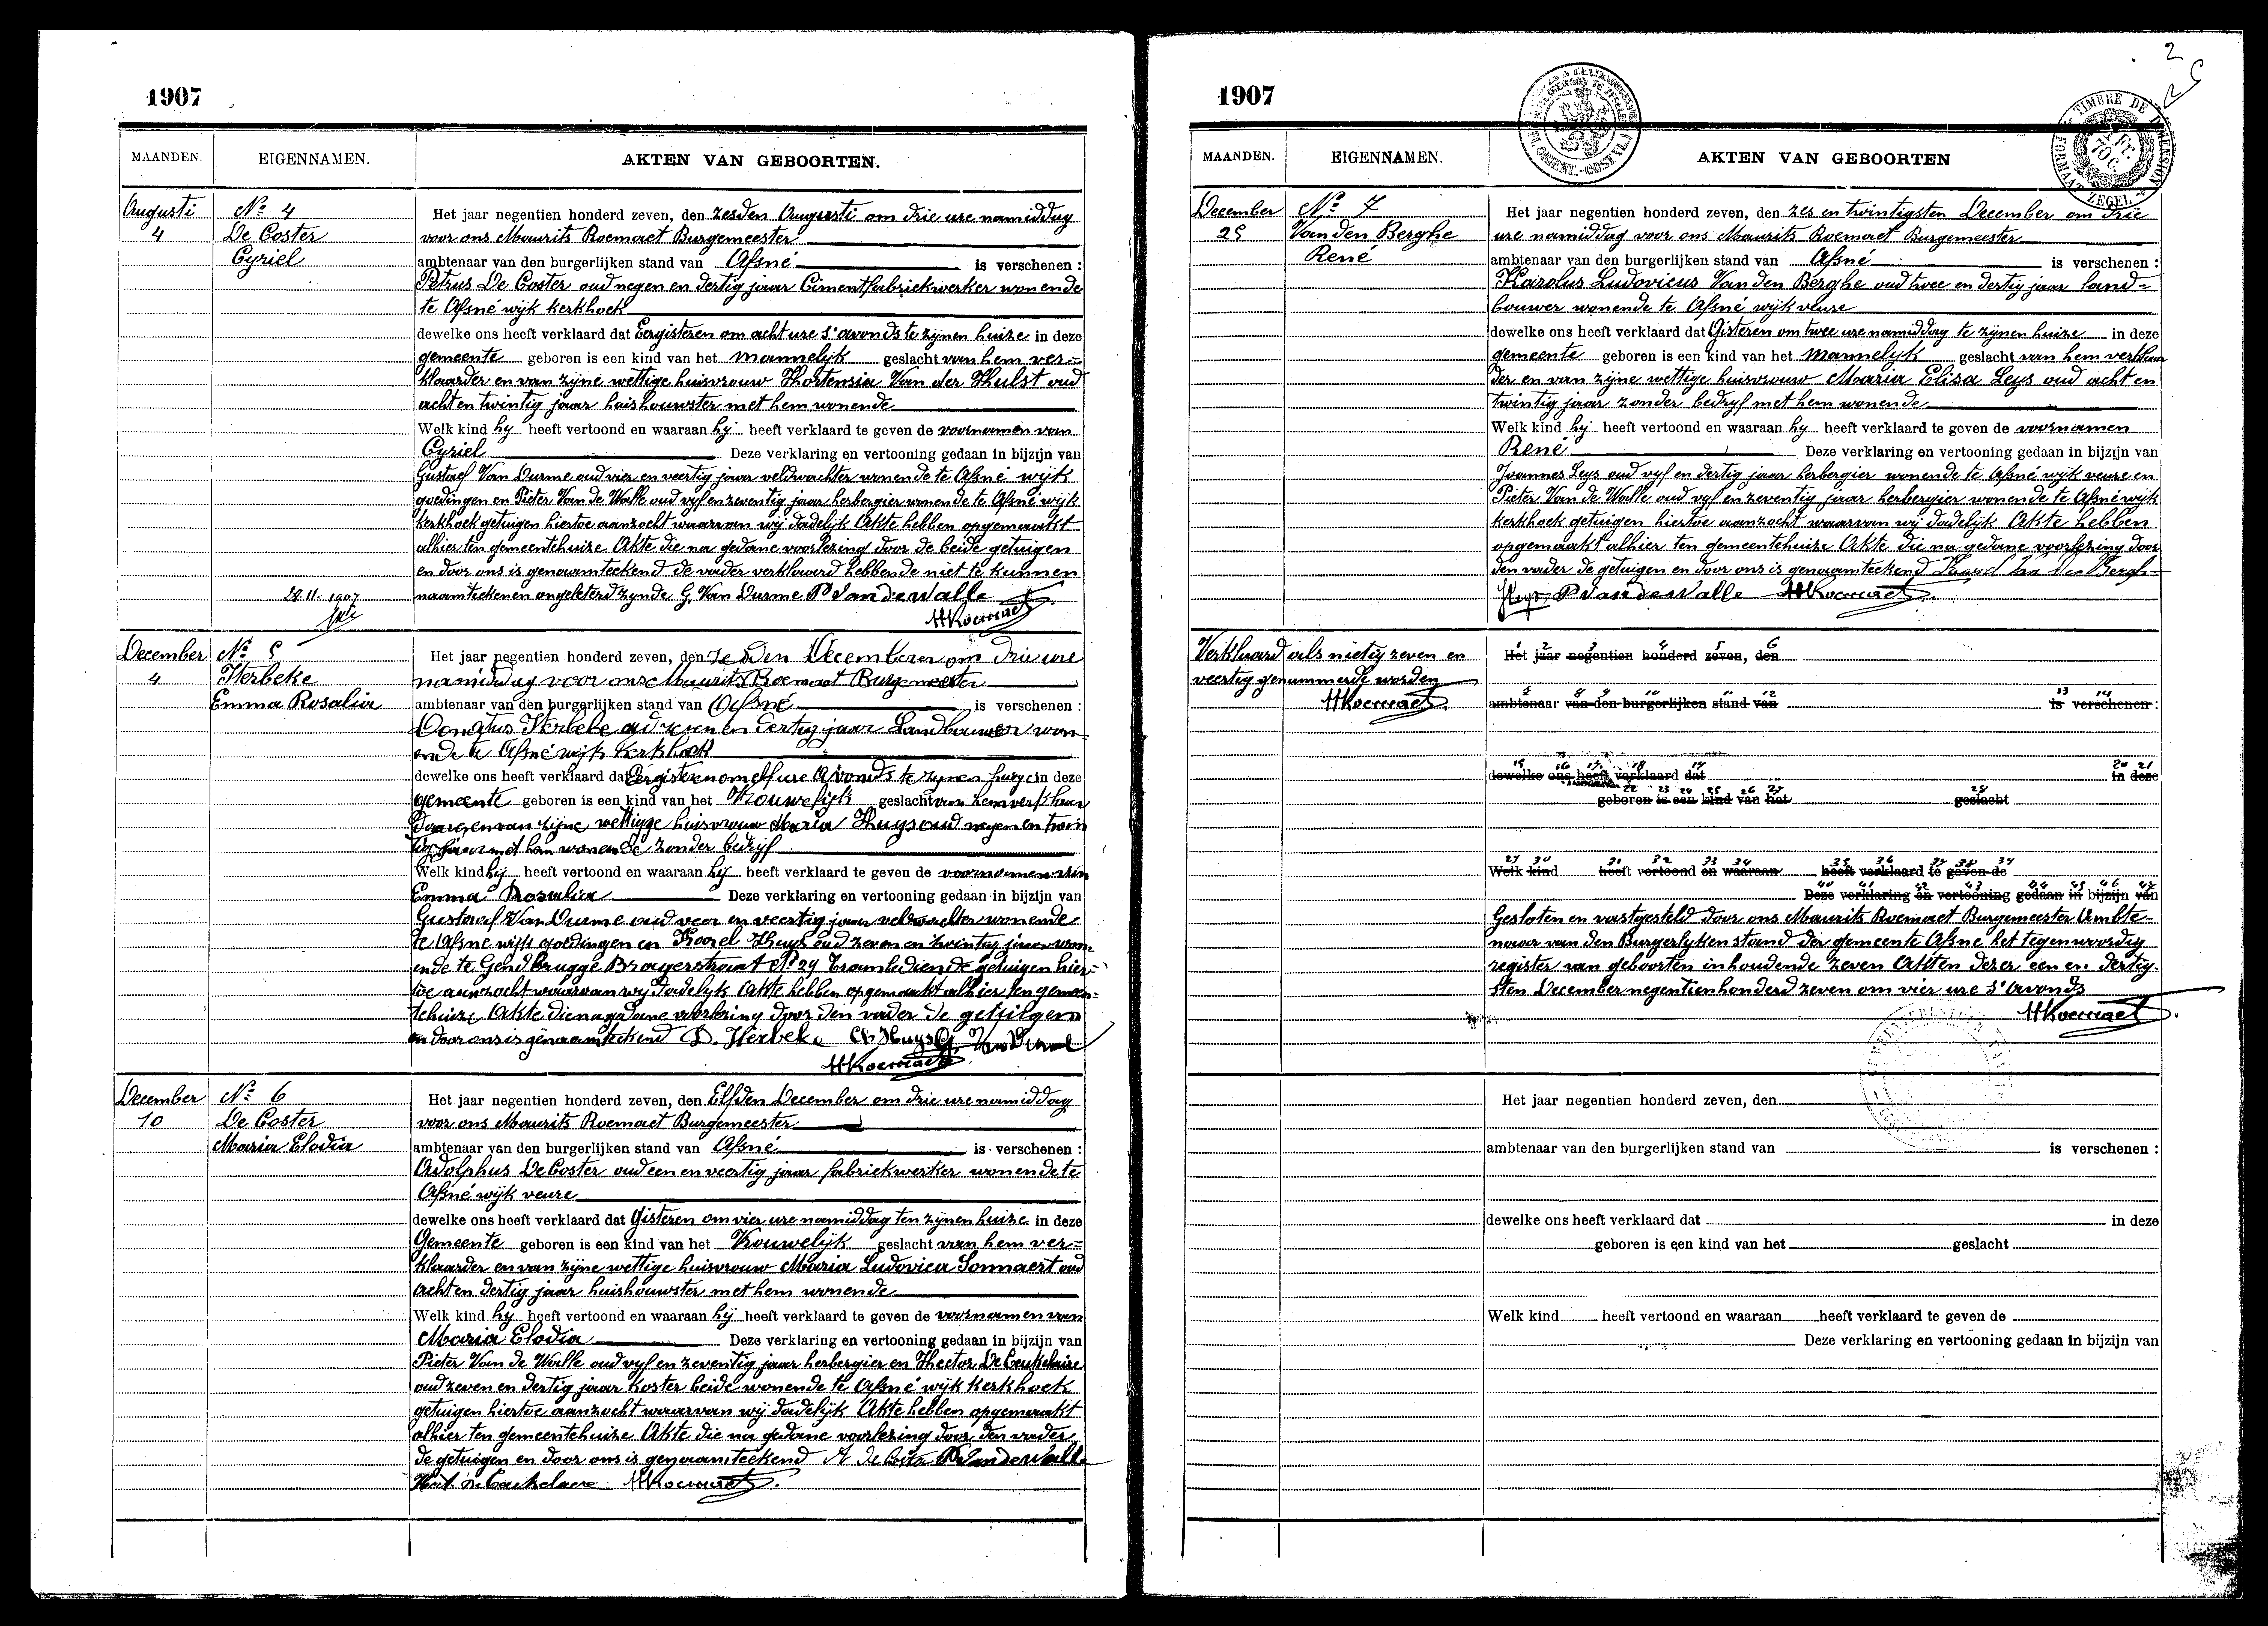 1907
MAANDEN.
EIGENNAMEN.
AKTEN VAN GEBOORTEN.
Augusti
4
No 4
De Coster
Cyriel
Het jaar negentien honderd zeven, den zesden Augusti om drie ure namiddag
voor ons Maurits Roemaet Burgemeester
ambtenaar van den burgerlijken stand van Afsné is verschenen :
Petrus De Coster oud negen en dertig jaar Cimentfabriekwerker wonende
te Afsné wijk kerkhoek
dewelke ons heeft verklaard dat Eergisteren om acht ure s'avonds te zijnen huize in deze
gemeente geboren is een kind van het mannelyk geslacht van hem ver=
klaarder en van zijne wettige huisvrouw Hortensia Van der Hulst oud
acht en twintig jaar huishouwster met hem wonende
Welk kind hy heeft vertoond en waaraan hy heeft verklaard te geven de voornamen van
Cyriel Deze verklaring en vertooning gedaan in bijzijn van
Gustaef Van Durme oud vier en veertig jaar veldwachter wonende te Afsné wijk
goedingen en Pieter Van de Walle oud vyf en zeventig jaar herbergier wonende te Afsné wijk
kerkhoek getuigen hiertoe aanzocht waarvan wij dadelijk Akte hebben opgemaakt
alhier ten gemeentehuize Akte die na gedane voorlezing door de beide getuigen
en door ons is genaamteekend de vader verklaard hebbende niet te kunnen
naamteekenen ongeleterd zynde G. Van Durme P Van de Walle
28.11.1907
MRoemaet
December
4
No 5
Herbeke
Emma Rosalia
Het jaar negentien honderd zeven, den zesden December om drie ure
namiddag voor ons Maurits Roemaet Burgemeester
ambtenaar van den burgerlijken stand van Afsné is verschenen :
Donatus Herbeke oud zeven en dertig jaar Landbouwer won-
ende te Afsné wijk kerkhoek
dewelke ons heeft verklaard dat Eergisteren om elf ure Avonds te zynen huize in deze
gemeente geboren is een kind van het Vrouwelijk geslacht van hem verklaar
daar en van zijne wettigge huisvrouw Maria Huys oud negen en twin
tig jaar met hem wonende zonder bedrijf
Welk kind hij heeft vertoond en waaraan hij heeft verklaard te geven de voornamen van
Emma Rosalia Deze verklaring en vertooning gedaan in bijzijn van
Gustaaf Van Durme oud veer en veertig jaar veldwachter wonende
te Afsne wijk goedingen en Karel Huys oud zeven en twintig jaar won-
ende te Gendbrugge Brayerstraat No 29 Trambediende getuigen hier=
toe aanzocht waarvan wij dadelyk Akte hebben opgemaakt alhier ten gemeen=
tehuize Akte die na gedane voorlezing door den vader de getuigen
en door ons is genaamteekend D. Herbeke Ch Huys G. Van Durme
MRoemaet
December
10
No 6
De Coster
Maria Elodia
Het jaar negentien honderd zeven, den Elfden December om drie ure namiddag
voor ons Maurits Roemaet Burgemeester
ambtenaar van den burgerlijken stand van Afsné is verschenen :
Adolphus De Coster oud een en veertig jaar fabriekwerker wonende te
Afsné wijk veure
dewelke ons heeft verklaard dat Gisteren om vier ure namiddag ten zijnen huize in deze
Gemeente geboren is een kind van het Vrouwelijk geslacht van hem ver=
klaarder en van zijne wettige huisvrouw Maria Ludovica Sonnaert oud
acht en dertig jaar huishouwster met hem wonende
Welk kind hy heeft vertoond en waaraan hij heeft verklaard te geven de voornamen van
Maria Elodia Deze verklaring en vertooning gedaan in bijzijn van
Pieter Van de Walle oud vyf en zeventig jaar herbergier en Hector De Ceukelaire
oud zeven en dertig jaar koster beide wonende te Afsné wijk kerkhoek
getuigen hiertoe aanzocht waarvan wij dadelijk Akte hebben opgemaakt
alhier ten gemeentehuize Akte die na gedane voorlezing door den vader
de getuigen en door ons is genaamteekend A De Coster P Van de Walle
Hect. De Ceukelaere MRoemaet
2
1907
TIMBRE DE DIMENSION
FORMAAT ZEGEL
MAANDEN.
EIGENNAMEN.
AKTEN VAN GEBOORTEN
December
25
No 7
Van den Berghe
René
Het jaar negentien honderd zeven, den zes en twintigsten December om drie
ure namiddag voor ons Maurits Roemaet Burgemeester
ambtenaar van den burgerlijken stand van Afsné is verschenen :
Karolus Ludovicus Van den Berghe oud twee en dertig jaar land-
bouwer wonende te Afsné wijk veure
dewelke ons heeft verklaard dat Gisteren om twee ure namiddag te zijnen huize in deze
gemeente geboren is een kind van het mannelyk geslacht van hem verklaar
der en van zijne wettige huisvrouw Maria Elisa Leys oud acht en
twintig jaar zonder bedryf met hem wonende
Welk kind hy heeft vertoond en waaraan hy heeft verklaard te geven de voornamen
René Deze verklaring en vertooning gedaan in bijzijn van
Joannes Leys oud vyf en dertig jaar herbergier wonende te Afsné wijk veure en
Pieter Van de Walle oud vyf en zeventig jaar herbergier wonende te Afsné wijk
kerkhoek getuigen hiertoe aanzocht waarvan wij dadelijk Akte hebben
opgemaakt alhier ten gemeentehuize Akte die na gedane voorlezing door
den vader de getuigen en door ons is genaamteekend Karel Van den Berghe
Leys P Van de Walle MRoemaet
Verklaard als nietig zeven en
veertig genummerde woorden
MRoemaet
1 2 3 4 5 6
Het jaar negentien honderd zeven, den
7 8 9 10 11 12 13 14
ambtenaar van den burgerlijken stand van is verschenen :
15 16 17 18 19 20 21
dewelke ons heeft verklaard dat in deze
22 23 24 25 26 27 28
geboren is een kind van het geslacht
29 30 31 32 33 34 35 36 37 38 39
Welk kind heeft vertoond en waaraan heeft verklaard te geven de
40 41 42 43 44 45 46 47
Deze verklaring en vertooning gedaan in bijzijn van
Gesloten en vastgesteld door ons Maurits Roemaet Burgemeester Ambte=
naar van den Burgerlyken stand der gemeente Afsné het tegenwoordig
register van geboorten inhoudende zeven Akten dezer een en dertig-
sten December negentienhonderd zeven om vier ure s'avonds
MRoemaet
Het jaar negentien honderd zeven, den
ambtenaar van den burgerlijken stand van is verschenen :
dewelke ons heeft verklaard dat in deze
geboren is een kind van het geslacht
Welk kind heeft vertoond en waaraan heeft verklaard te geven de
Deze verklaring en vertooning gedaan in bijzijn van